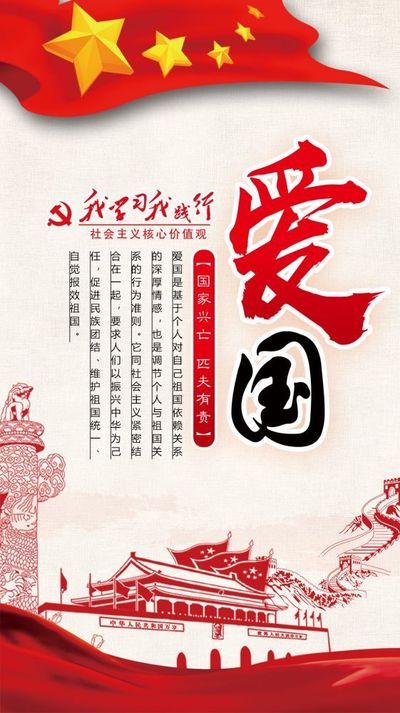 爱国
我学习我践行
社会主义核心价值观
【国家兴亡 匹夫有责】
爱国是基于个人对自己祖国依赖关系
的深厚情感，也是调节个人与祖国关
系的行为准则。它同社会主义紧密结
合在一起，要求人们以振兴中华为己
任，促进民族团结、维护祖国统一、
自觉报效祖国。
中华人民共和国万岁
世界人民大团结万岁